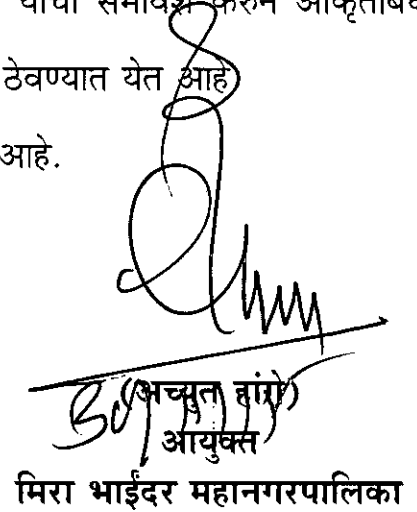 यांचा समावेश करुन आकृतीबंध
ठेवण्यात येत आहे
आहे.
(अच्युत हांगे)
आयुक्त
मिरा भाईंदर महानगरपालिका